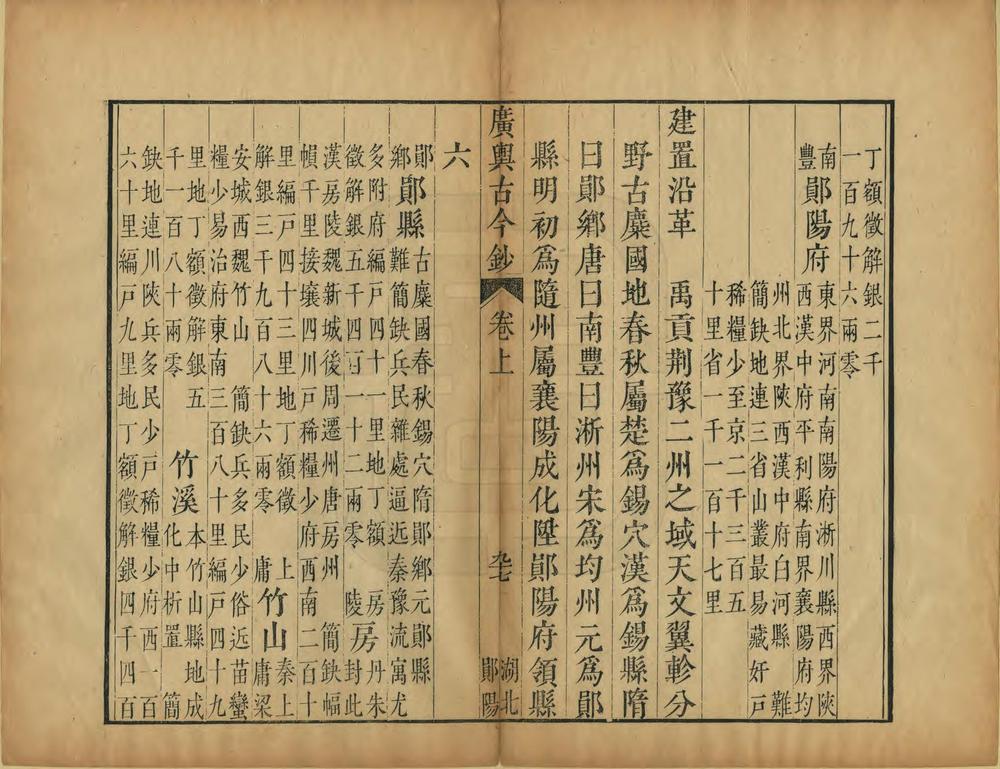 丁額徵解銀二千
一百九十六兩零
南豐
鄖陽府
東界河南南陽府淅川縣西界陝
西漢中府平利縣南界襄陽府均
州北界陝西漢中府白河縣　難
簡缺地連三省山叢最易藏奸戶
稀糧少至京二千三百五
十里省一千一百十七里
建置沿革　禹貢荆豫二州之域天文翼軫分
野古麋國地春秋屬楚爲錫穴漢爲錫縣隋
曰鄖鄉唐曰南豐曰淅州宋爲均州元爲鄖
縣明初爲隨州屬襄陽成化陞鄖陽府領縣
廣輿古今鈔　卷上　九七　湖北鄖陽
六
鄖鄉
鄖縣
古麋國春秋錫穴隋鄖鄉元鄖縣
難簡缺兵民雜處逼近秦豫流寓尤
多附府編戶四十一里地丁額
徵解銀五千四百一十二兩零
房陵
房
丹朱封此
漢房陵魏新城後周遷州唐房州　簡缺幅
幀千里接壤四川戶稀糧少府西南二百十
里編戶四十三里地丁額徵
解銀三千九百八十六兩零
上庸
竹山
秦上庸梁
安城西魏竹山　簡缺兵多民少俗近苗蠻
糧少易治府東南三百八十里編戶四十九
里地丁額徵解銀五
千一百八十兩零
竹溪
本竹山縣地成
化中析置　簡
缺地連川陝兵多民少戶稀糧少府西一百
六十里編戶九里地丁額徵解銀四千四百